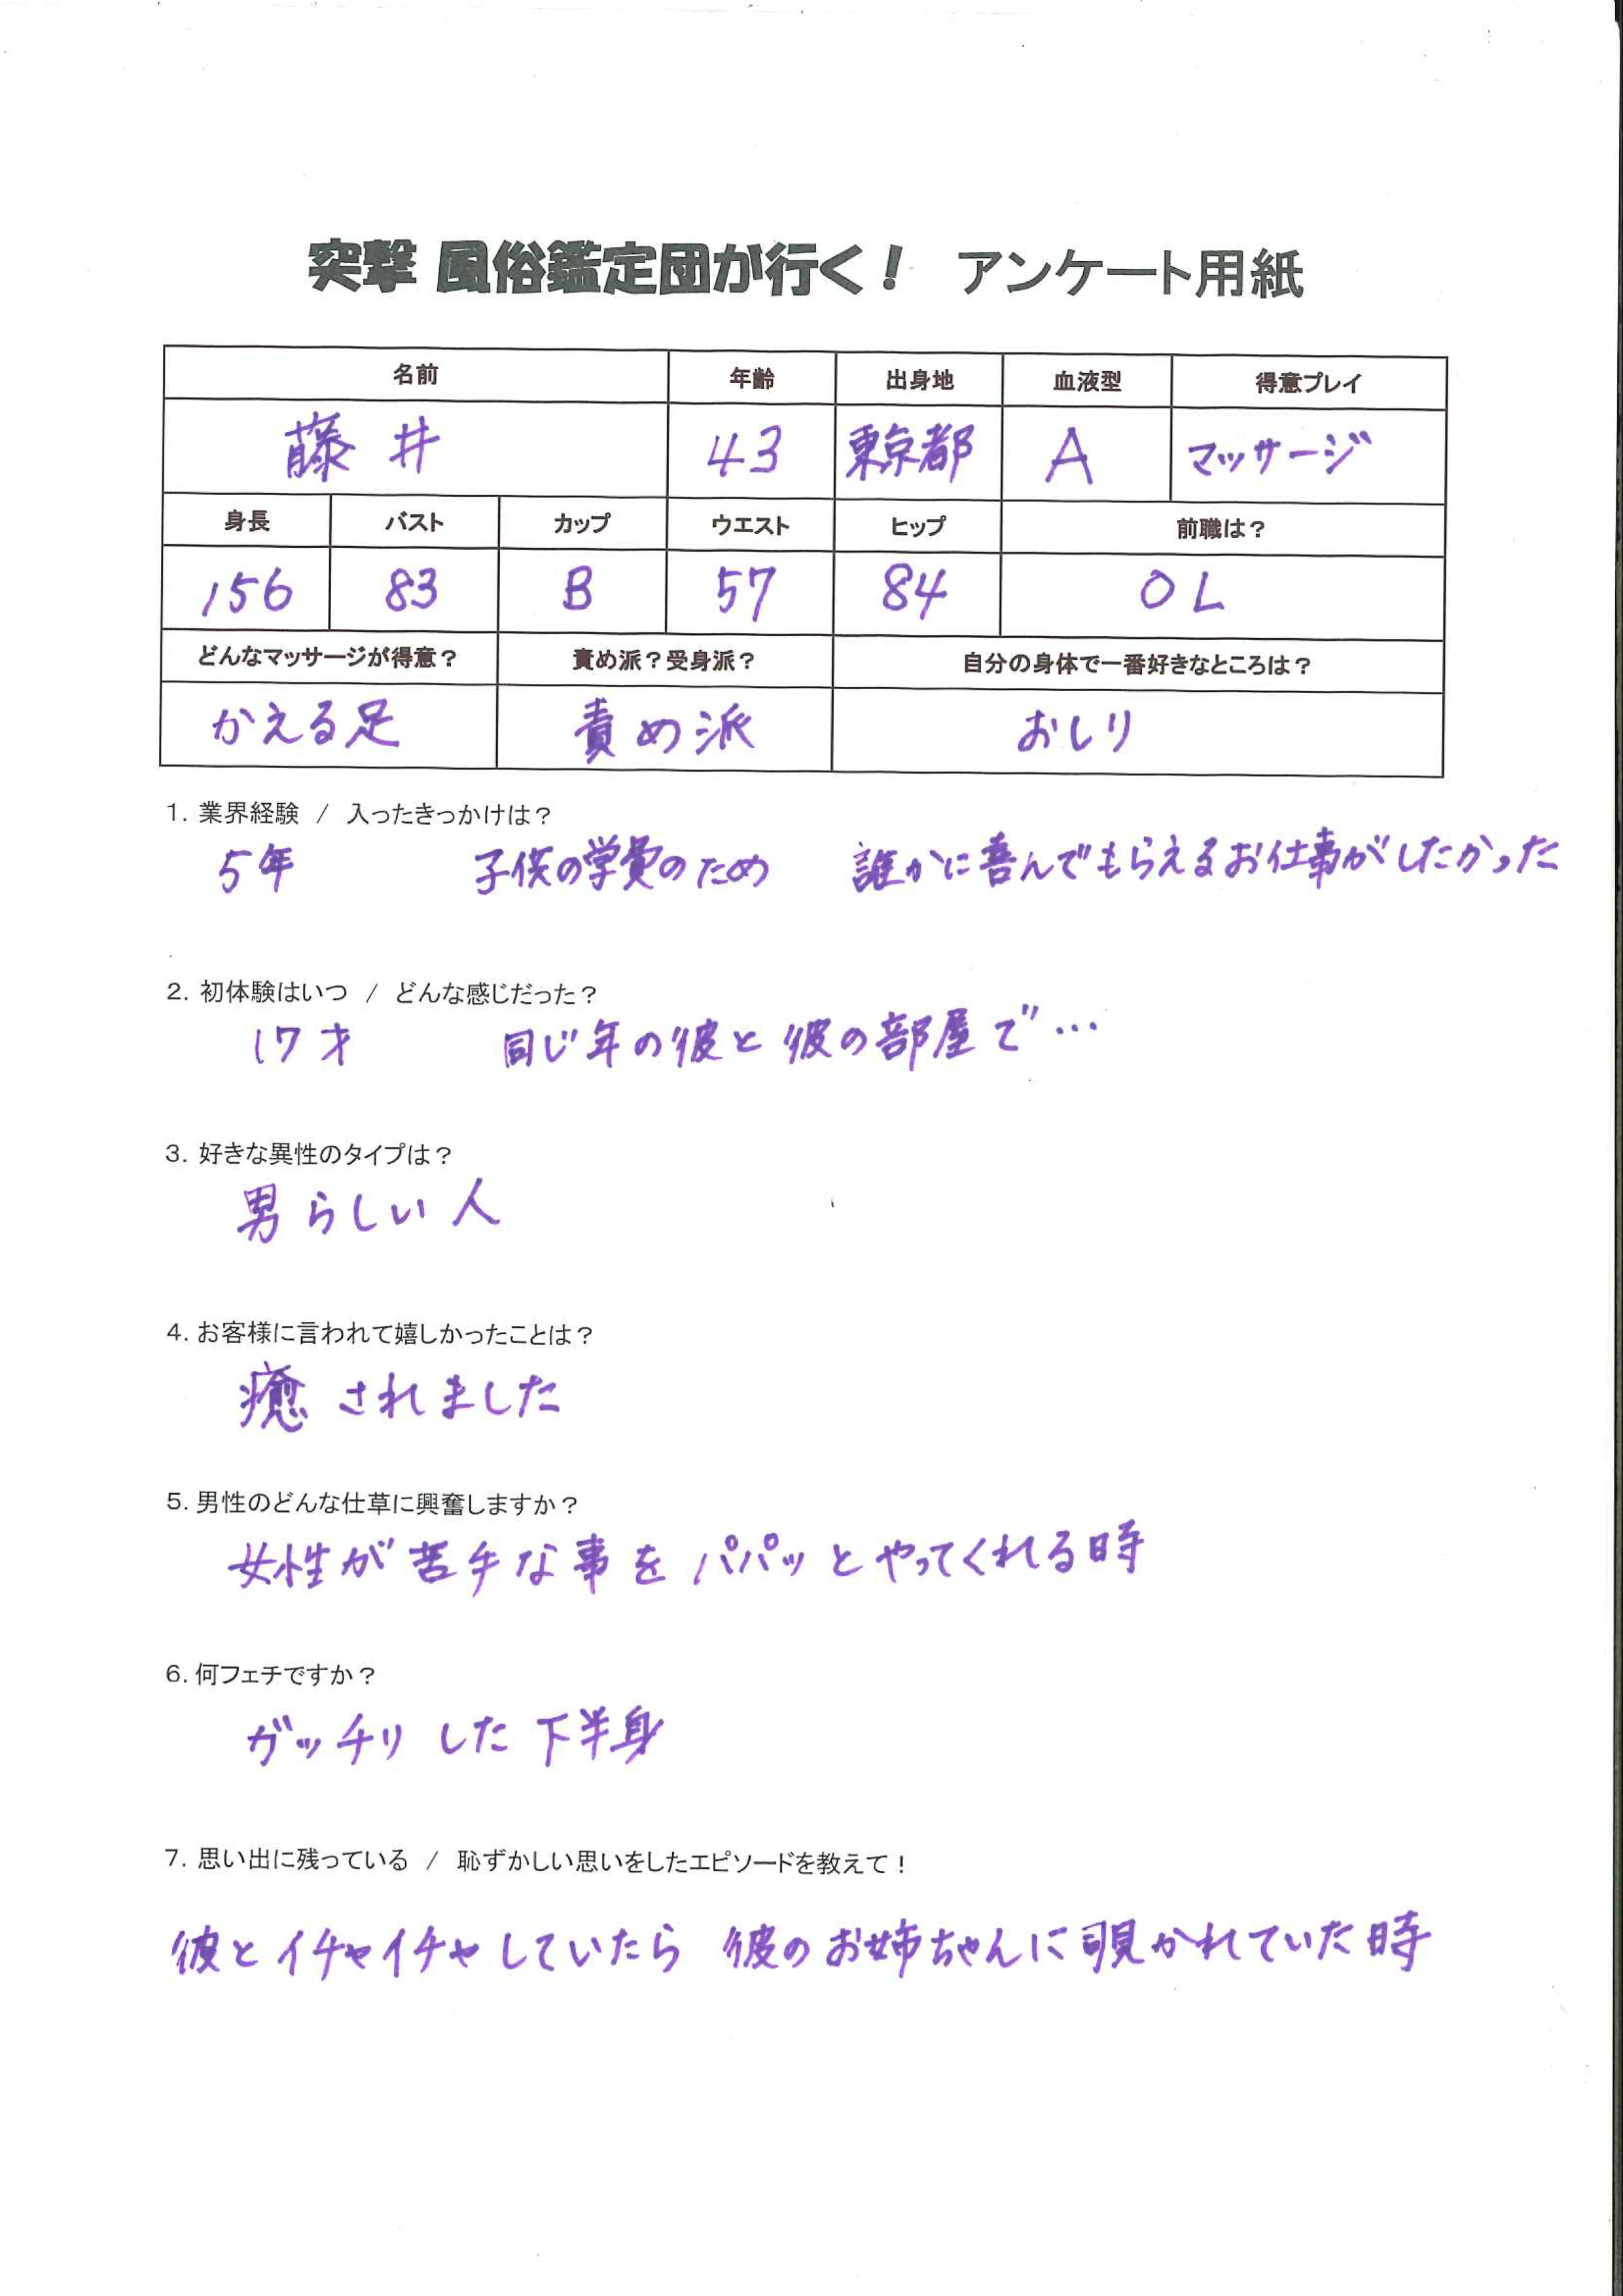 突撃 風俗鑑定団が行く! アンケート用紙
名前 年齢 出身地 血液型 得意プレイ
藤井 43 東京都 A マッサージ
身長 バスト カップ ウエスト ヒップ 前職は?
156 83 B 57 84 OL
どんなマッサージが得意? 責め派?受身派? 自分の身体で一番好きなところは?
かえる足 責め派 おしり
1. 業界経験 / 入ったきっかけは?
5年 子供の学費のため 誰かに喜んでもらえるお仕事がしたかった
2. 初体験はいつ / どんな感じだった?
17才 同じ年の彼と彼の部屋で…
3. 好きな異性のタイプは?
男らしい人
4. お客様に言われて嬉しかったことは?
癒されました
5. 男性のどんな仕草に興奮しますか?
女性が苦手な事をパパッとやってくれる時
6. 何フェチですか?
ガッチリした下半身
7. 思い出に残っている / 恥ずかしい思いをしたエピソードを教えて!
彼とイチャイチャしていたら 彼のお姉ちゃんに覗かれていた時